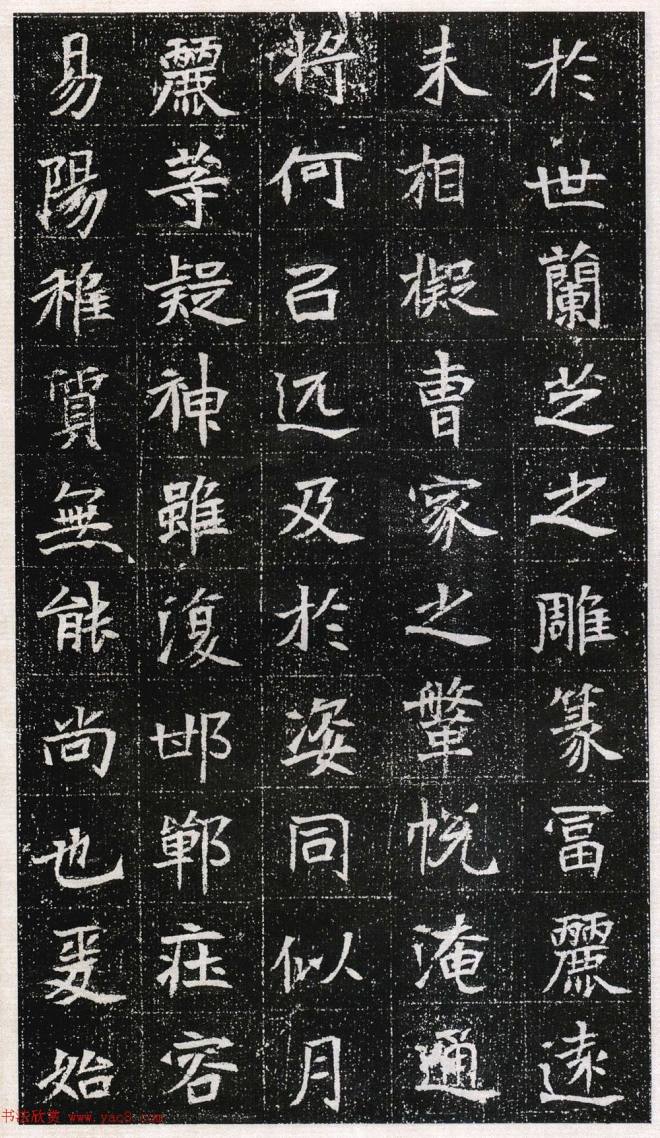 於世蘭芝之雕篆冨麗遠
未相擬曹家之鞶帨淹通
將何㠯远及於姿同似月
麗䓁疑神雖復邯鄲庄容
易陽稚質無能尚也爰始
书法欣赏 www.yac8.com